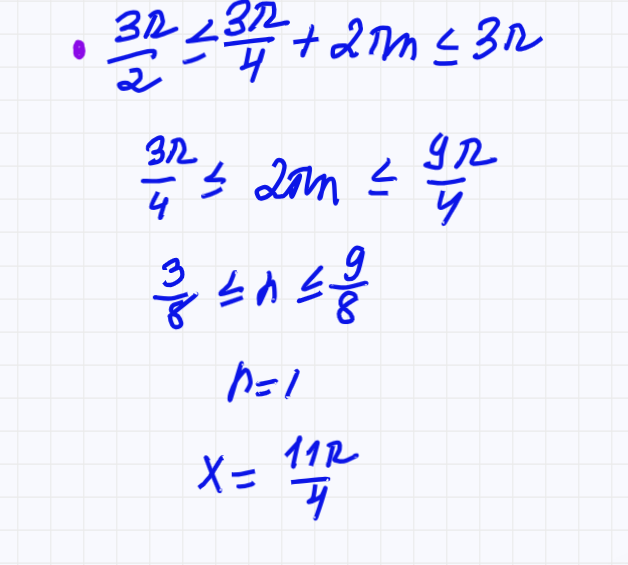 • 3π/2 ≤ 3π/4 + 2πn ≤ 3π
3π/4 ≤ 2πn ≤ 9π/4
3/8 ≤ n ≤ 9/8
n = 1
x = 11π/4